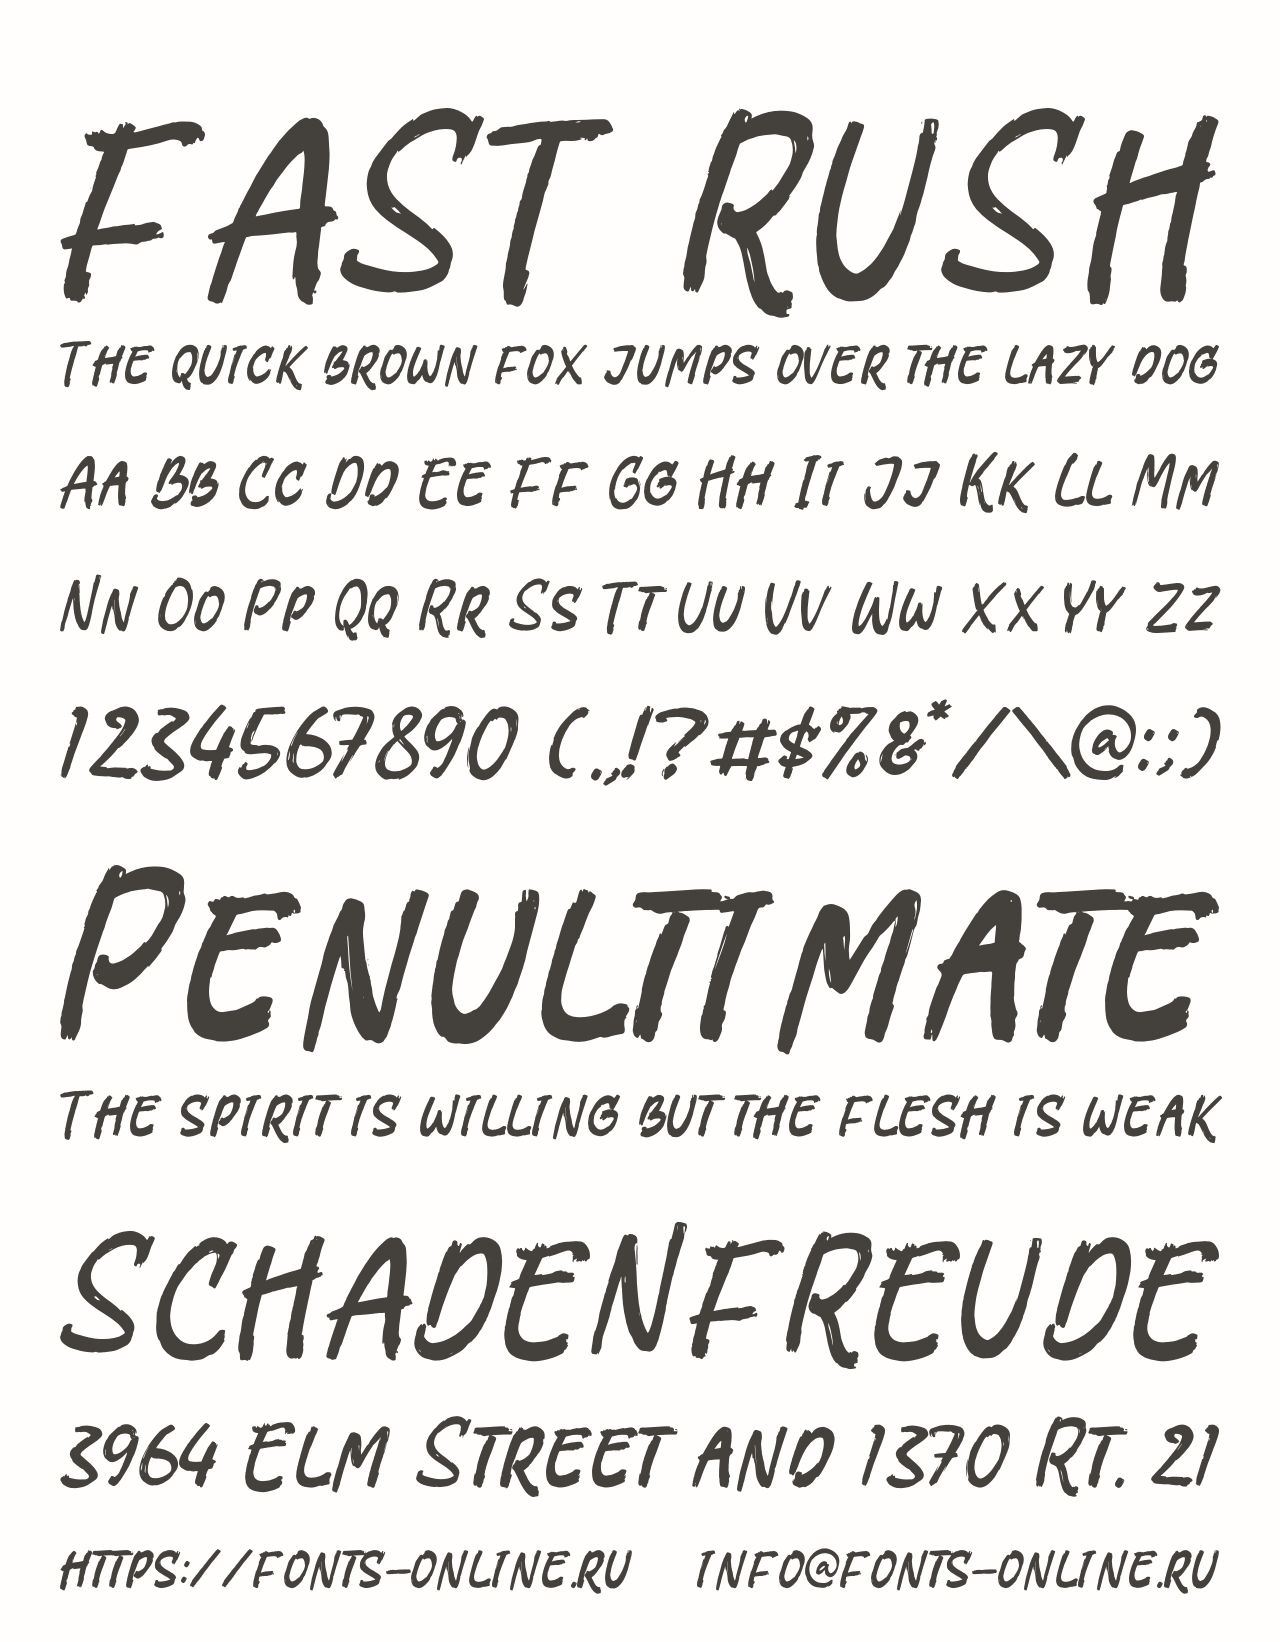 FAST RUSH
THE QUICK BROWN FOX JUMPS OVER THE LAZY DOG
AA BB CC DD EE FF GG HH II JJ KK LL MM
NN OO PP QQ RR SS TT UU VV WW XX YY ZZ
1234567890 (.,!?#$%&*/\@:;)
PENULTIMATE
THE SPIRIT IS WILLING BUT THE FLESH IS WEAK
SCHADENFREUDE
3964 ELM STREET AND 1370 RT. 21
HTTPS://FONTS-ONLINE.RU INFO@FONTS-ONLINE.RU